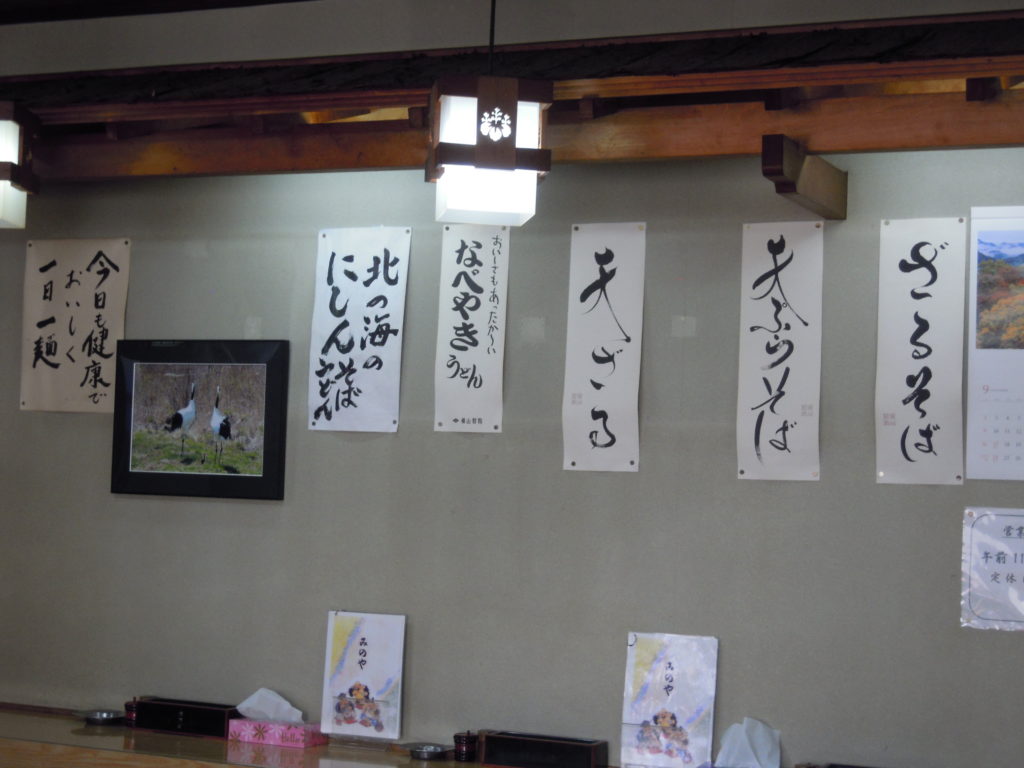 今日も健康で
おいしく
一日一麺
北の海の
にしんそば
うどん
おいしさもあったか〜い
なべやき
うどん
天ざる
天ぷらそば
ざるそば
9
営業
午前11
定休
みのや
みのや